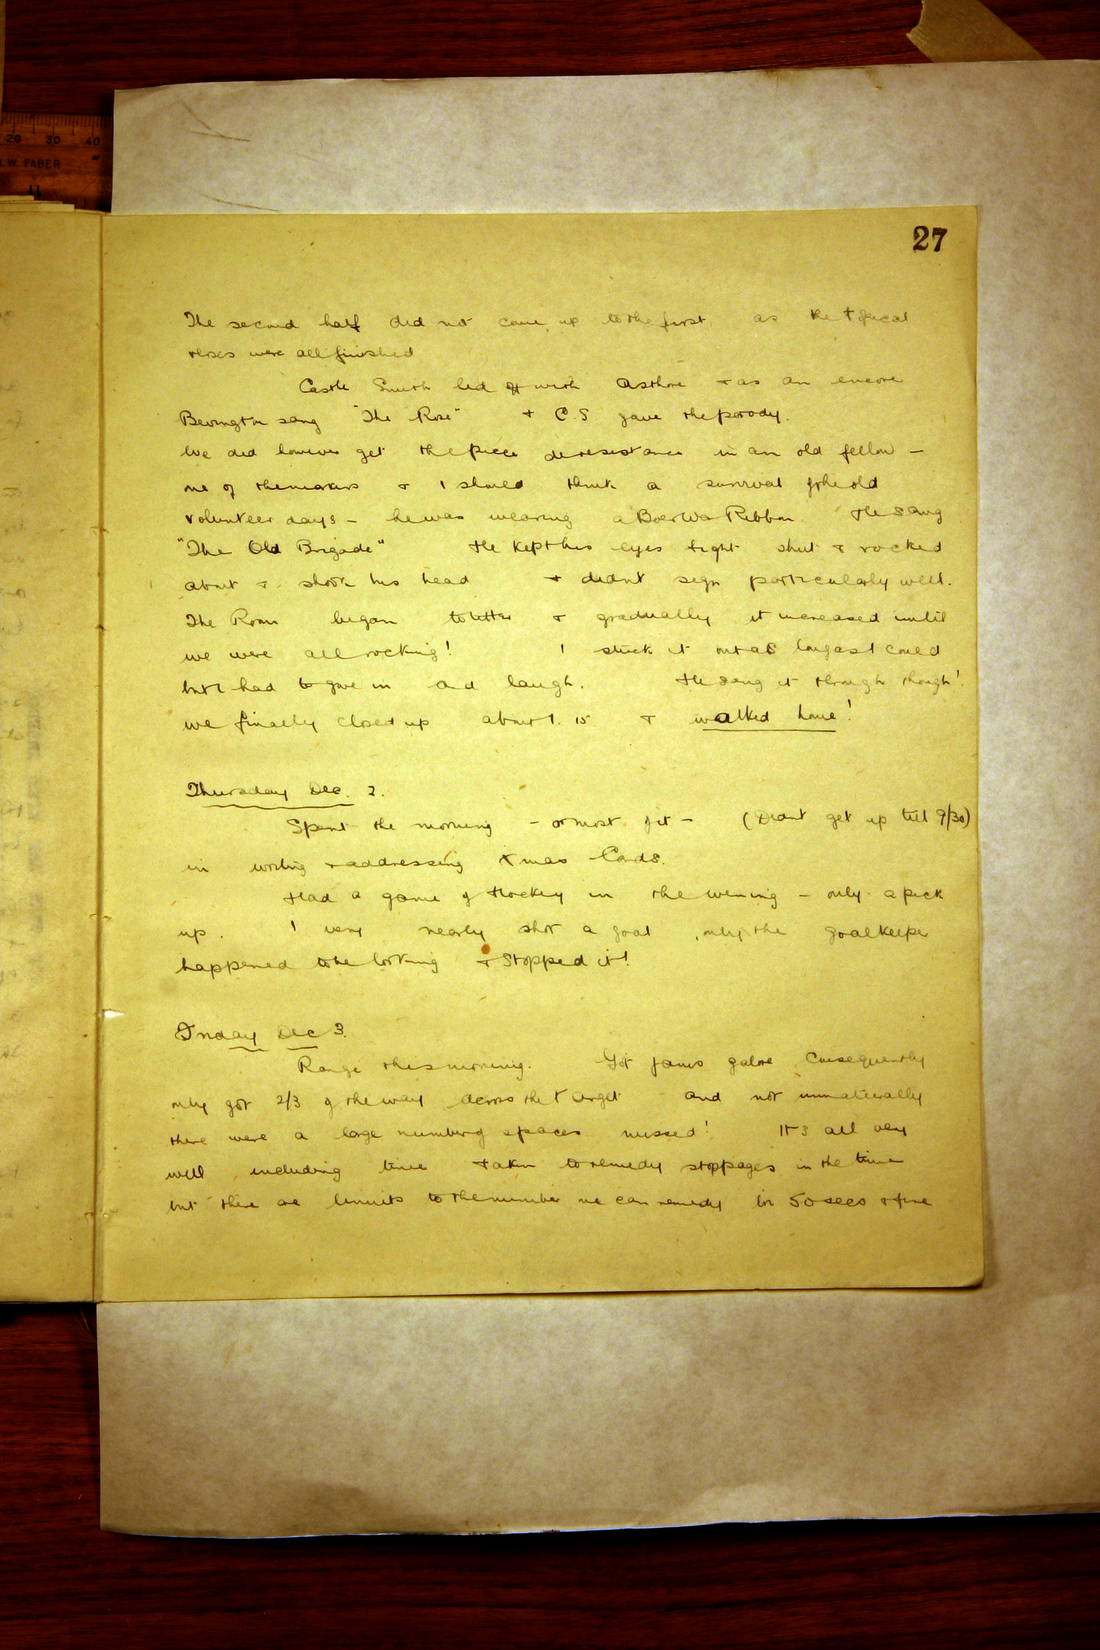 20 30 40
W. FABER
27
The second half did not come up to the first, as the topical
verses were all finished
Castle Smith led off with Asthore & as an encore
Bevington sang "The Rose" & C.S gave the parody.
We did however get the piece de resistance in an old fellow –
one of the markers & I should think a survival of the old
volunteer days – he was wearing a Boer War Ribbon. He sang
"The Old Brigade" He kept his eyes tight shut & rocked
about & shook his head & didnt sign particularly well.
The Room began to titter & gradually it increased until
we were all rocking! I stuck it out as long as I could
but I had to give in and laugh. He sang it through though!
we finally closed up about 1.15 & walked home!
Thursday Dec. 2.
Spent the morning – or most of it – (Didnt get up till 9/30)
in writing & addressing Xmas Cards.
Had a game of Hockey in the evening – only a pick
up. I very nearly shot a goal, only the goalkeeper
happened to be looking & stopped it!
Friday Dec 3.
Range this morning. Got jams galore. Consequently
only got 2/3 of the way across the target and not unnaturally
there were a large number of spaces missed! It's all very
well including time taken to remedy stoppages in the time
but there are limits to the number we can remedy in 50 secs & fire